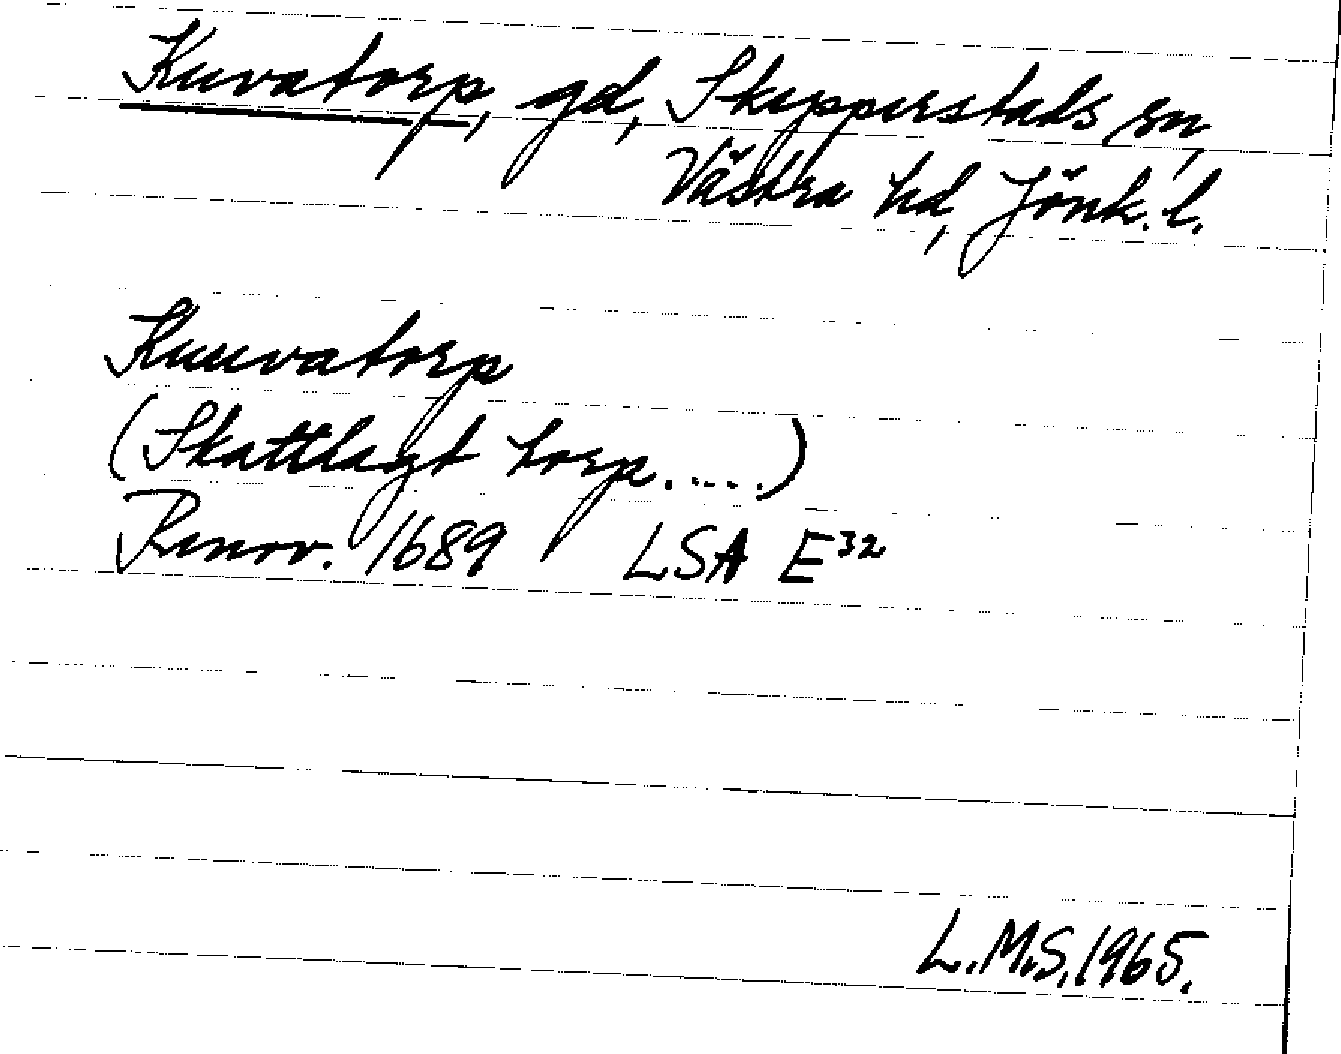 Kuvatorp, gd, Skepperstads sn,
Västra hd, Jönk. l.
Kuuvatorp
(Skattlagt torp.....)
Renov. 1689 LSA E³²
L.M.S. 1965.